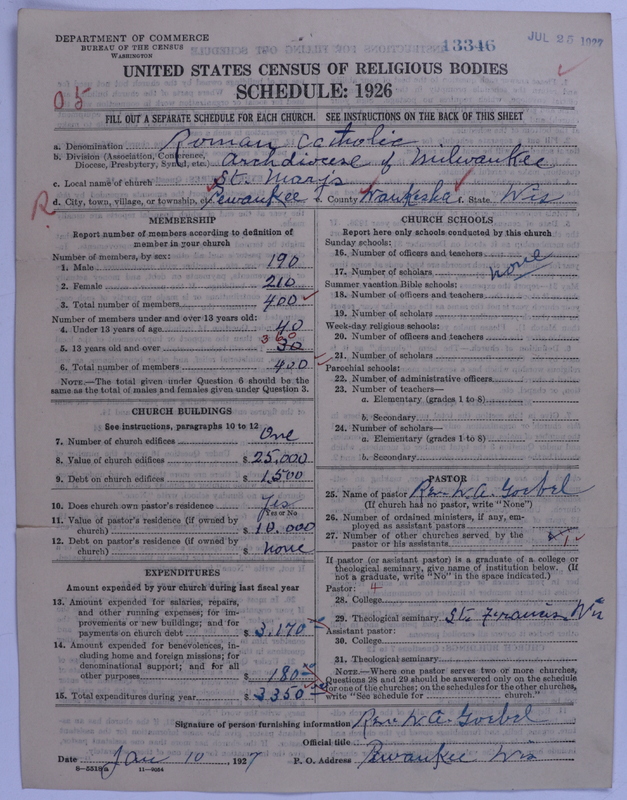 DEPARTMENT OF COMMERCE
BUREAU OF THE CENSUS
WASHINGTON
13346
JUL 25 1927
UNITED STATES CENSUS OF RELIGIOUS BODIES
SCHEDULE: 1926
05
FILL OUT A SEPARATE SCHEDULE FOR EACH CHURCH. SEE INSTRUCTIONS ON THE BACK OF THIS SHEET
a. Denomination Roman Catholic
b. Division (Association, Conference, Diocese, Presbytery, Synod, etc.) Archdiocese of Milwaukee
c. Local name of church St. Marys
R d. City, town, village, or township, etc. Pewaukee e. County Waukesha f. State Wis
MEMBERSHIP
Report number of members according to definition of
member in your church
Number of members, by sex:
1. Male 190
2. Female 210
3. Total number of members 400
Number of members under and over 13 years old:
4. Under 13 years of age 40
360
5. 13 years old and over 30
6. Total number of members 400
NOTE.—The total given under Question 6 should be
same as the total of males and females given under Question 3.
CHURCH BUILDINGS
See instructions, paragraphs 10 to 12
7. Number of church edifices One
8. Value of church edifices $ 25,000
9. Debt on church edifices $ 1,500
10. Does church own pastor's residence Yes
Yes or No
11. Value of pastor's residence (if owned by
church) $ 10,000
12. Debt on pastor's residence (if owned by
church) $ none
EXPENDITURES
Amount expended by your church during last fiscal year
13. Amount expended for salaries, repairs,
and other running expenses; for im-
provements or new buildings; and for
payments on church debt $ 3,170
14. Amount expended for benevolences, in-
cluding home and foreign missions; for
denominational support; and for all
other purposes $ 180
15. Total expenditures during year $ 3350
CHURCH SCHOOLS
Report here only schools conducted by this church
Sunday schools:
16. Number of officers and teachers
17. Number of scholars none
Summer vacation Bible schools:
18. Number of officers and teachers
19. Number of scholars
Week-day religious schools:
20. Number of officers and teachers
21. Number of scholars
Parochial schools:
22. Number of administrative officers
23. Number of teachers—
a. Elementary (grades 1 to 8)
b. Secondary
24. Number of scholars—
a. Elementary (grades 1 to 8)
b. Secondary
PASTOR
25. Name of pastor Rev. W. A. Goebel
(If church has no pastor, write "None")
26. Number of ordained ministers, if any, em-
ployed as assistant pastors
27. Number of other churches served by the
pastor or his assistants 1
If pastor (or assistant pastor) is a graduate of a college or
theological seminary, give name of institution below. (If
not a graduate, write "No" in the space indicated.)
Pastor: 4
28. College
29. Theological seminary St. Francis, Wis
Assistant pastor:
30. College
31. Theological seminary
NOTE.—Where one pastor serves two or more churches,
Questions 28 and 29 should be answered only on the schedule
for one of the churches; on the schedules for the other churches,
write "See schedule for church."
Signature of person furnishing information Rev. W. A. Goebel
Official title
Date Jan 10, 1927 P. O. Address Pewaukee Wis
8—5518a 11—9054